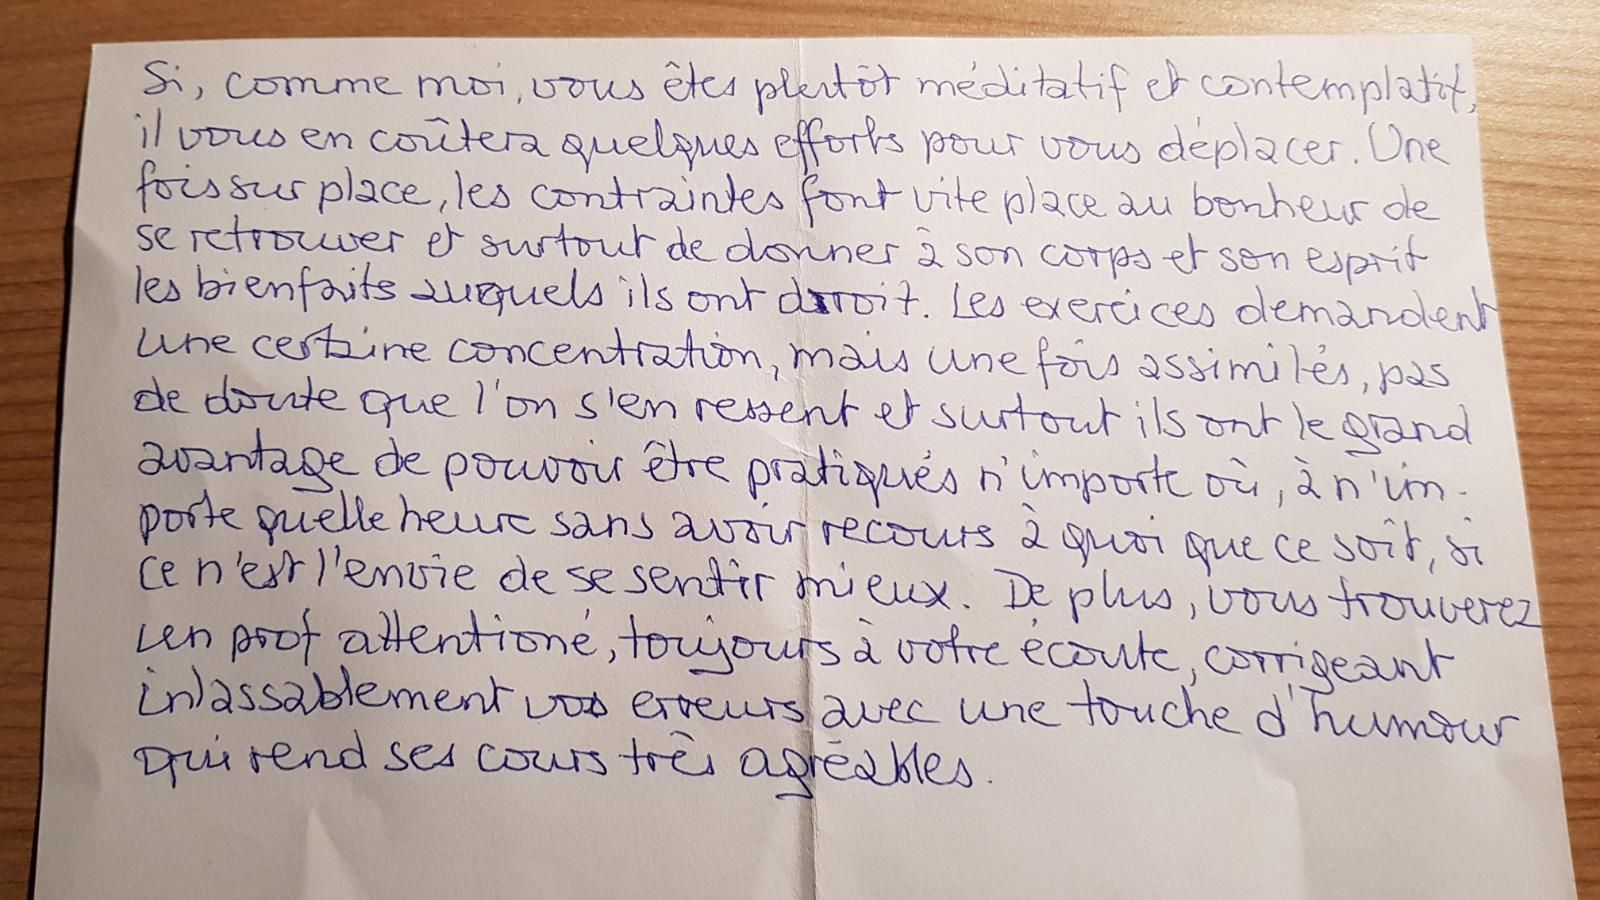 Si, comme moi, vous êtes plutôt méditatif et contemplatif,
il vous en coûtera quelques efforts pour vous déplacer. Une
fois sur place, les contraintes font vite place au bonheur de
se retrouver et surtout de donner à son corps et son esprit
les bienfaits auxquels ils ont droit. Les exercices demandent
une certaine concentration, mais une fois assimilés, pas
de doute que l'on s'en ressent et surtout ils ont le grand
avantage de pouvoir être pratiqués n'importe où, à n'im-
porte quelle heure sans avoir recours à quoi que ce soit, si
ce n'est l'envie de se sentir mieux. De plus, vous trouverez
un prof attentioné, toujours à votre écoute, corrigeant
inlassablement vos erreurs avec une touche d'humour
qui rend ses cours très agréables.